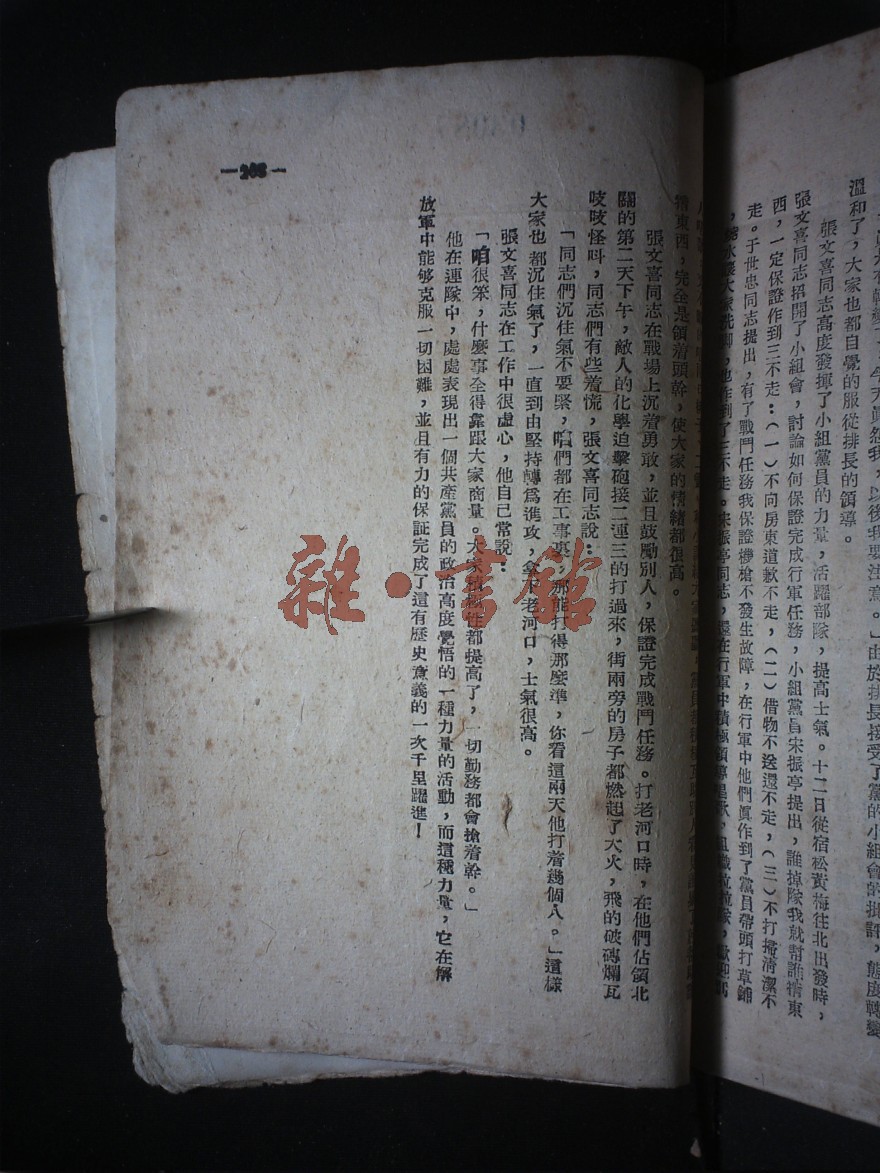 溫和了，大家也都自覺的服從排長的領導。
張文喜同志高度發揮了小組黨員的力量，活躍部隊，提高士氣。十二日從宿松黃梅往北出發時，
張文喜同志招開了小組會，討論如何保證完成行軍任務，小組黨員宋振亭提出，誰掉隊我就幫誰揹東
西，一定保證作到三不走：（一）不向房東道歉不走，（二）借物不送還不走，（三）不打掃清潔不
走。于世忠同志提出，有了戰鬥任務我保證擦槍不發生故障，在行軍中他們眞作到了黨員帶頭打草鋪
揹東西，完全是領着頭幹，使大家的情緒都很高。
張文喜同志在戰場上沉着勇敢，並且鼓勵別人，保證完成戰鬥任務。打老河口時，在他們佔領北
關的第二天下午，敵人的化學迫擊砲接二連三的打過來，街兩旁的房子都燃起了大火，飛的破磚爛瓦
吱吱怪叫，同志們有些着慌，張文喜同志說：
「同志們沉住氣不要緊，咱們都在工事裏，那能打得那麼準，你看這兩天他打着幾個人。」這樣
大家也都沉住氣了，一直到由堅持轉爲進攻，拿下老河口，士氣很高。
張文喜同志在工作中很虛心，他自己常說：
「咱很笨，什麼事全得靠跟大家商量。大家積極性都提高了，一切勤務都會搶着幹。」
他在連隊中，處處表現出一個共產黨員的政治高度覺悟的一種力量的活動，而這種力量，它在解
放軍中能够克服一切困難，並且有力的保証完成了這有歷史意義的一次千里躍進！
雜·書館